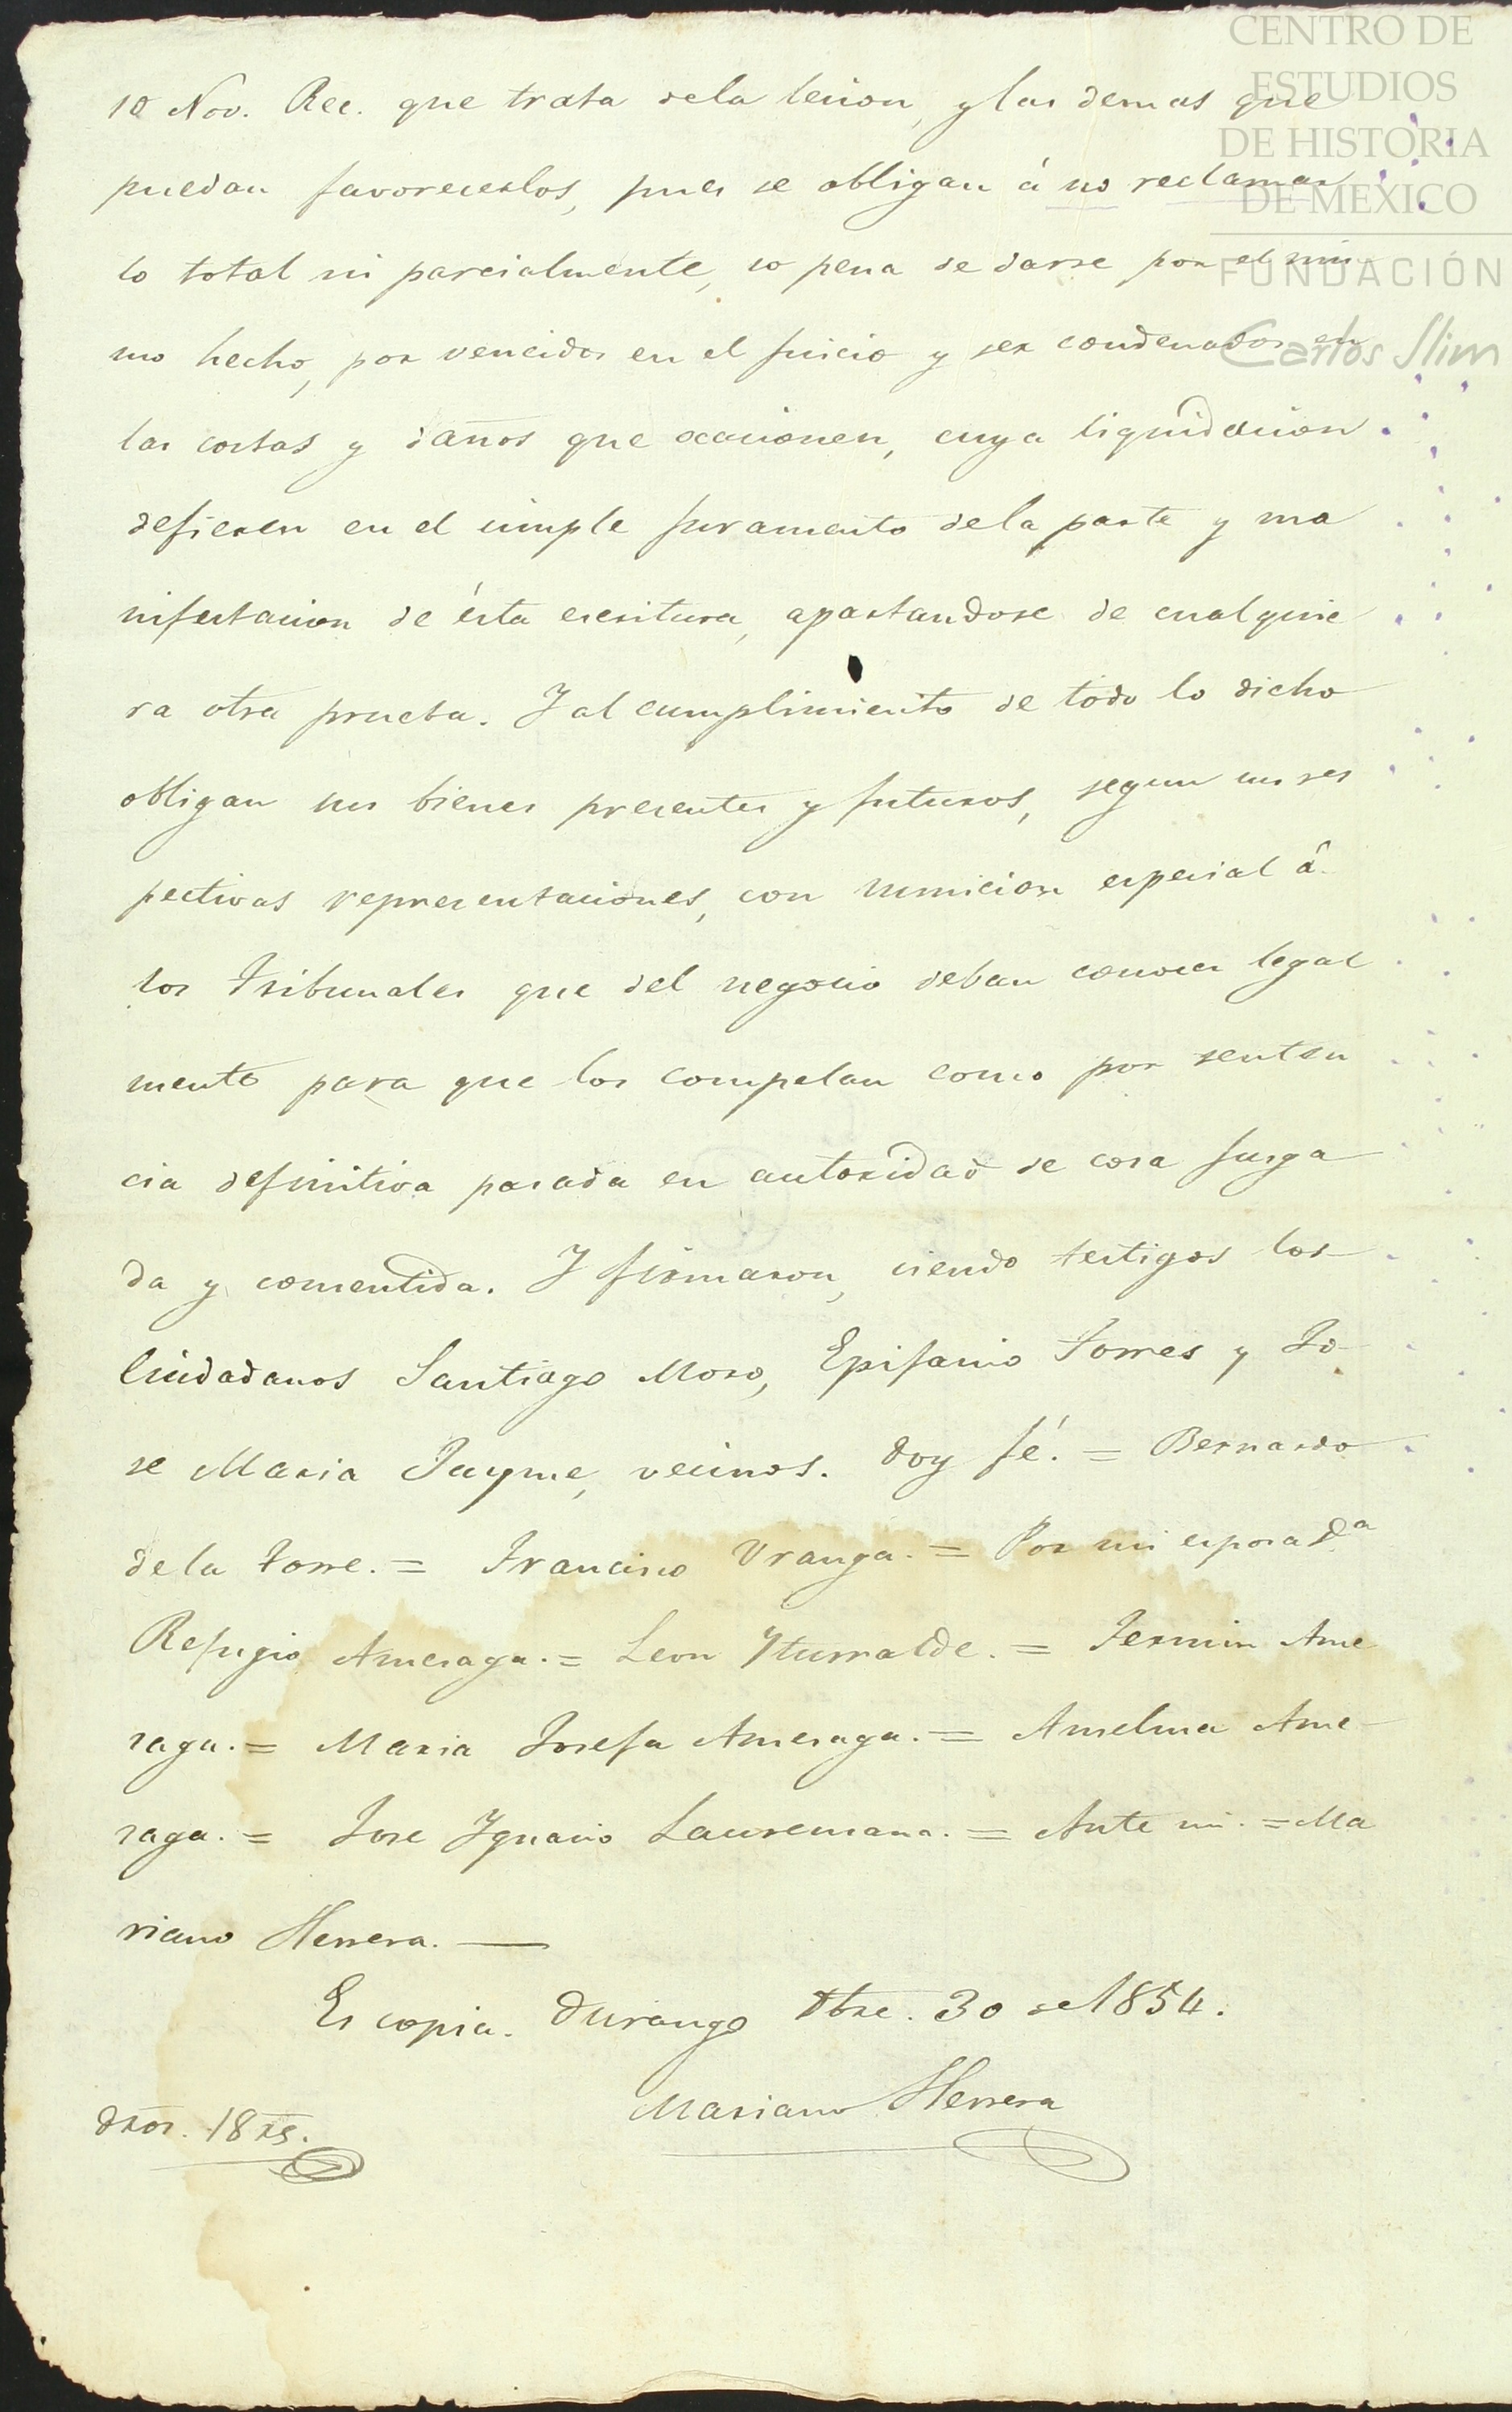 CENTRO DE
ESTUDIOS
DE HISTORIA
DE MEXICO
FUNDACIÓN
Carlos Slim
10 Nov. Rec. que trata dela lecion, y las demas que
puedan favorecerlos, pues se obligan á no reclamar
lo total ni parcialmente, so pena de darse por el mis
mo hecho, por vencidos en el juicio y ser condenados en
las costas y daños que ocacionen, cuya liquidacion
defieren en el simple juramento dela parte y ma
nifestacion de ésta escritura, apartandose de cualquie
ra otra prueba. Y al cumplimiento de todo lo dicho
obligan sus bienes presentes y futuros, segun sus res
pectivas representaciones, con sumicion especial á
los Tribunales que del negocio deban conocer legal
mente para que los compelan como por senten
cia definitiva pasada en autoridad de cosa jusga
da y consentida. Y firmaron, siendo testigos los
Ciudadanos Santiago Moro, Epifanio Torres y Jo-
se Maria Jayme, vecinos. Doy fé. = Bernardo
dela Torre. = Francisco Uranga. = Por mi esposa Dª
Refugio Amesaga. = Leon Yturralde. = Fermin Ame
saga. = Maria Josefa Amesaga. = Anselma Ame-
saga. = Jose Ygnacio Laurensana. = Ante mi. = Ma
riano Herrera. —
Es copia. Durango Dbre. 30 de 1854.
Mariano Herrera
Dros. 18 rs.